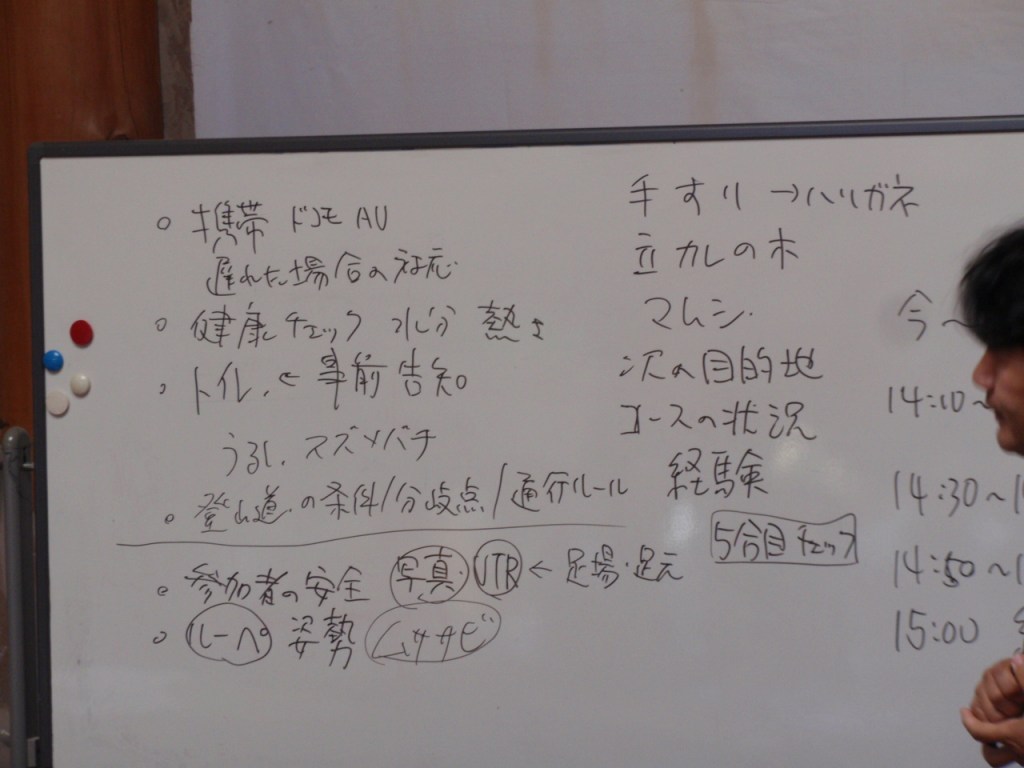 ○ 携帯 ドコモ AU
遅れた場合の対応
○ 健康チェック 水分 熱さ
○ トイレ ← 事前告知
うるし、スズメバチ
○ 登山道の条件/分岐点/通行ルール
○ 参加者の安全 写真 VTR ← 足場・足元
○ ルーペ 姿勢 ムササビ
手すり → ハリガネ
立カレの木
マムシ
次の目的地
コースの状況
経験
5合目チェック
今~
14:10~
14:30~1
14:50~1
15:00